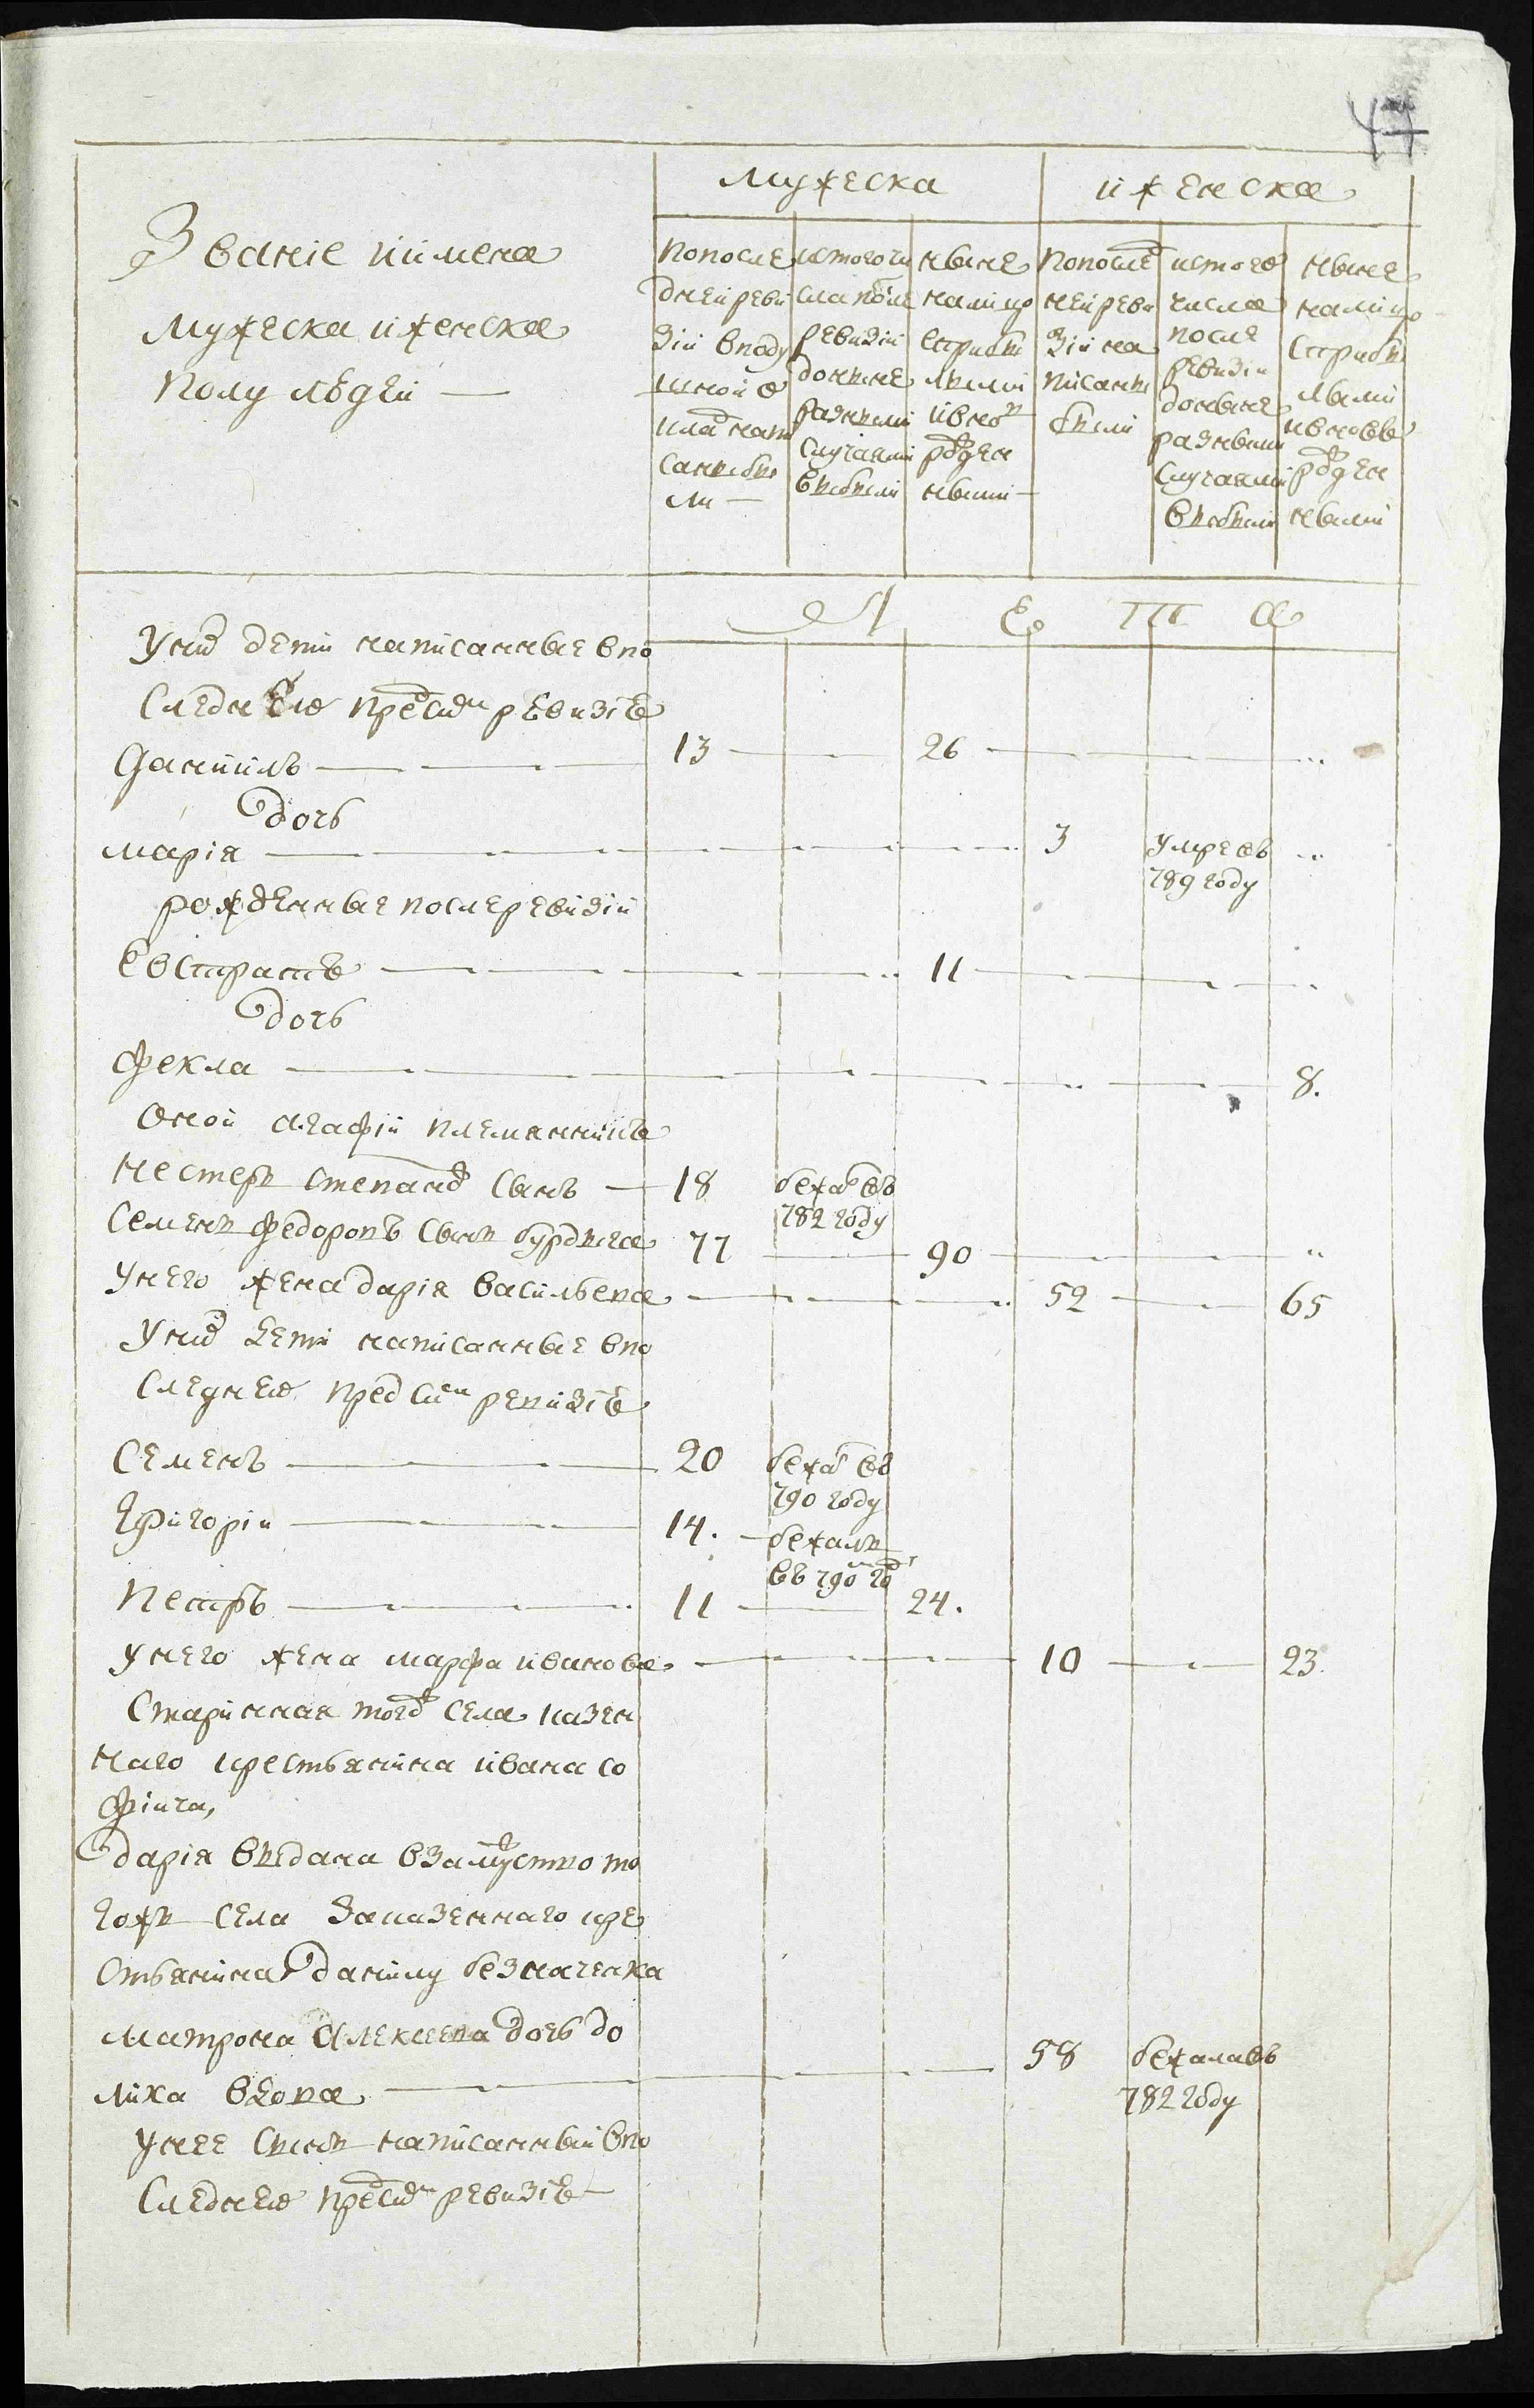 47
Званіе иимена
мужеска иженска
полу людей —
мужеска
иженска
Попосле
дней реви
зіи вподу
шной о
кла напи
саннебы
ли —
истогочи
сла посл
ревизіи
доныне
разными
случаями
выбыли
ныне
налицо
сприбы
лыми
ивно
рожден
ными —
Попосле
ней реви
зіи на
писаны
были
истого
числа
после
ревизіи
доныне
разными
случаями
выбыли
ныне
налицо
сприбы
лыми
ивновь
рожден
ными
Л Е Т А
Уних дети написанные впо
следнею пред сим ревизіе
Даниилъ — 13 — 26 —
дочь
марія — 3 умре въ
789 году
рожденные после ревизіи
Евстратъ — 11 —
дочь
фекла — 8.
оной агафіи племянникъ
нестеръ степановъ сынъ — 18 бежал въ
782 году
Семенъ федоровъ сынъ бурдыга 77 — 90 —
Унего жена дарія васильева — 52 — 65
Уних дети написанные впо
следнею пред сим ревизіе
Семенъ — 20 бежал въ
790 году
Григоріи — 14. — бежалъ
въ 790 год
Петръ — 11 — 24.
унего жена марфа иванова — 10 — 23.
Старинная тогож села казен
наго крестьянина ивана со
фіича,
дарія выдана взамужство то
гожъ села заказеннаго кре
стьянина данилу безначенка
матрона алексеева дочь до
лиха вдова — 58 бежала въ
782 году
Унее сынъ написанный впо
следнею пред сим ревизіе —